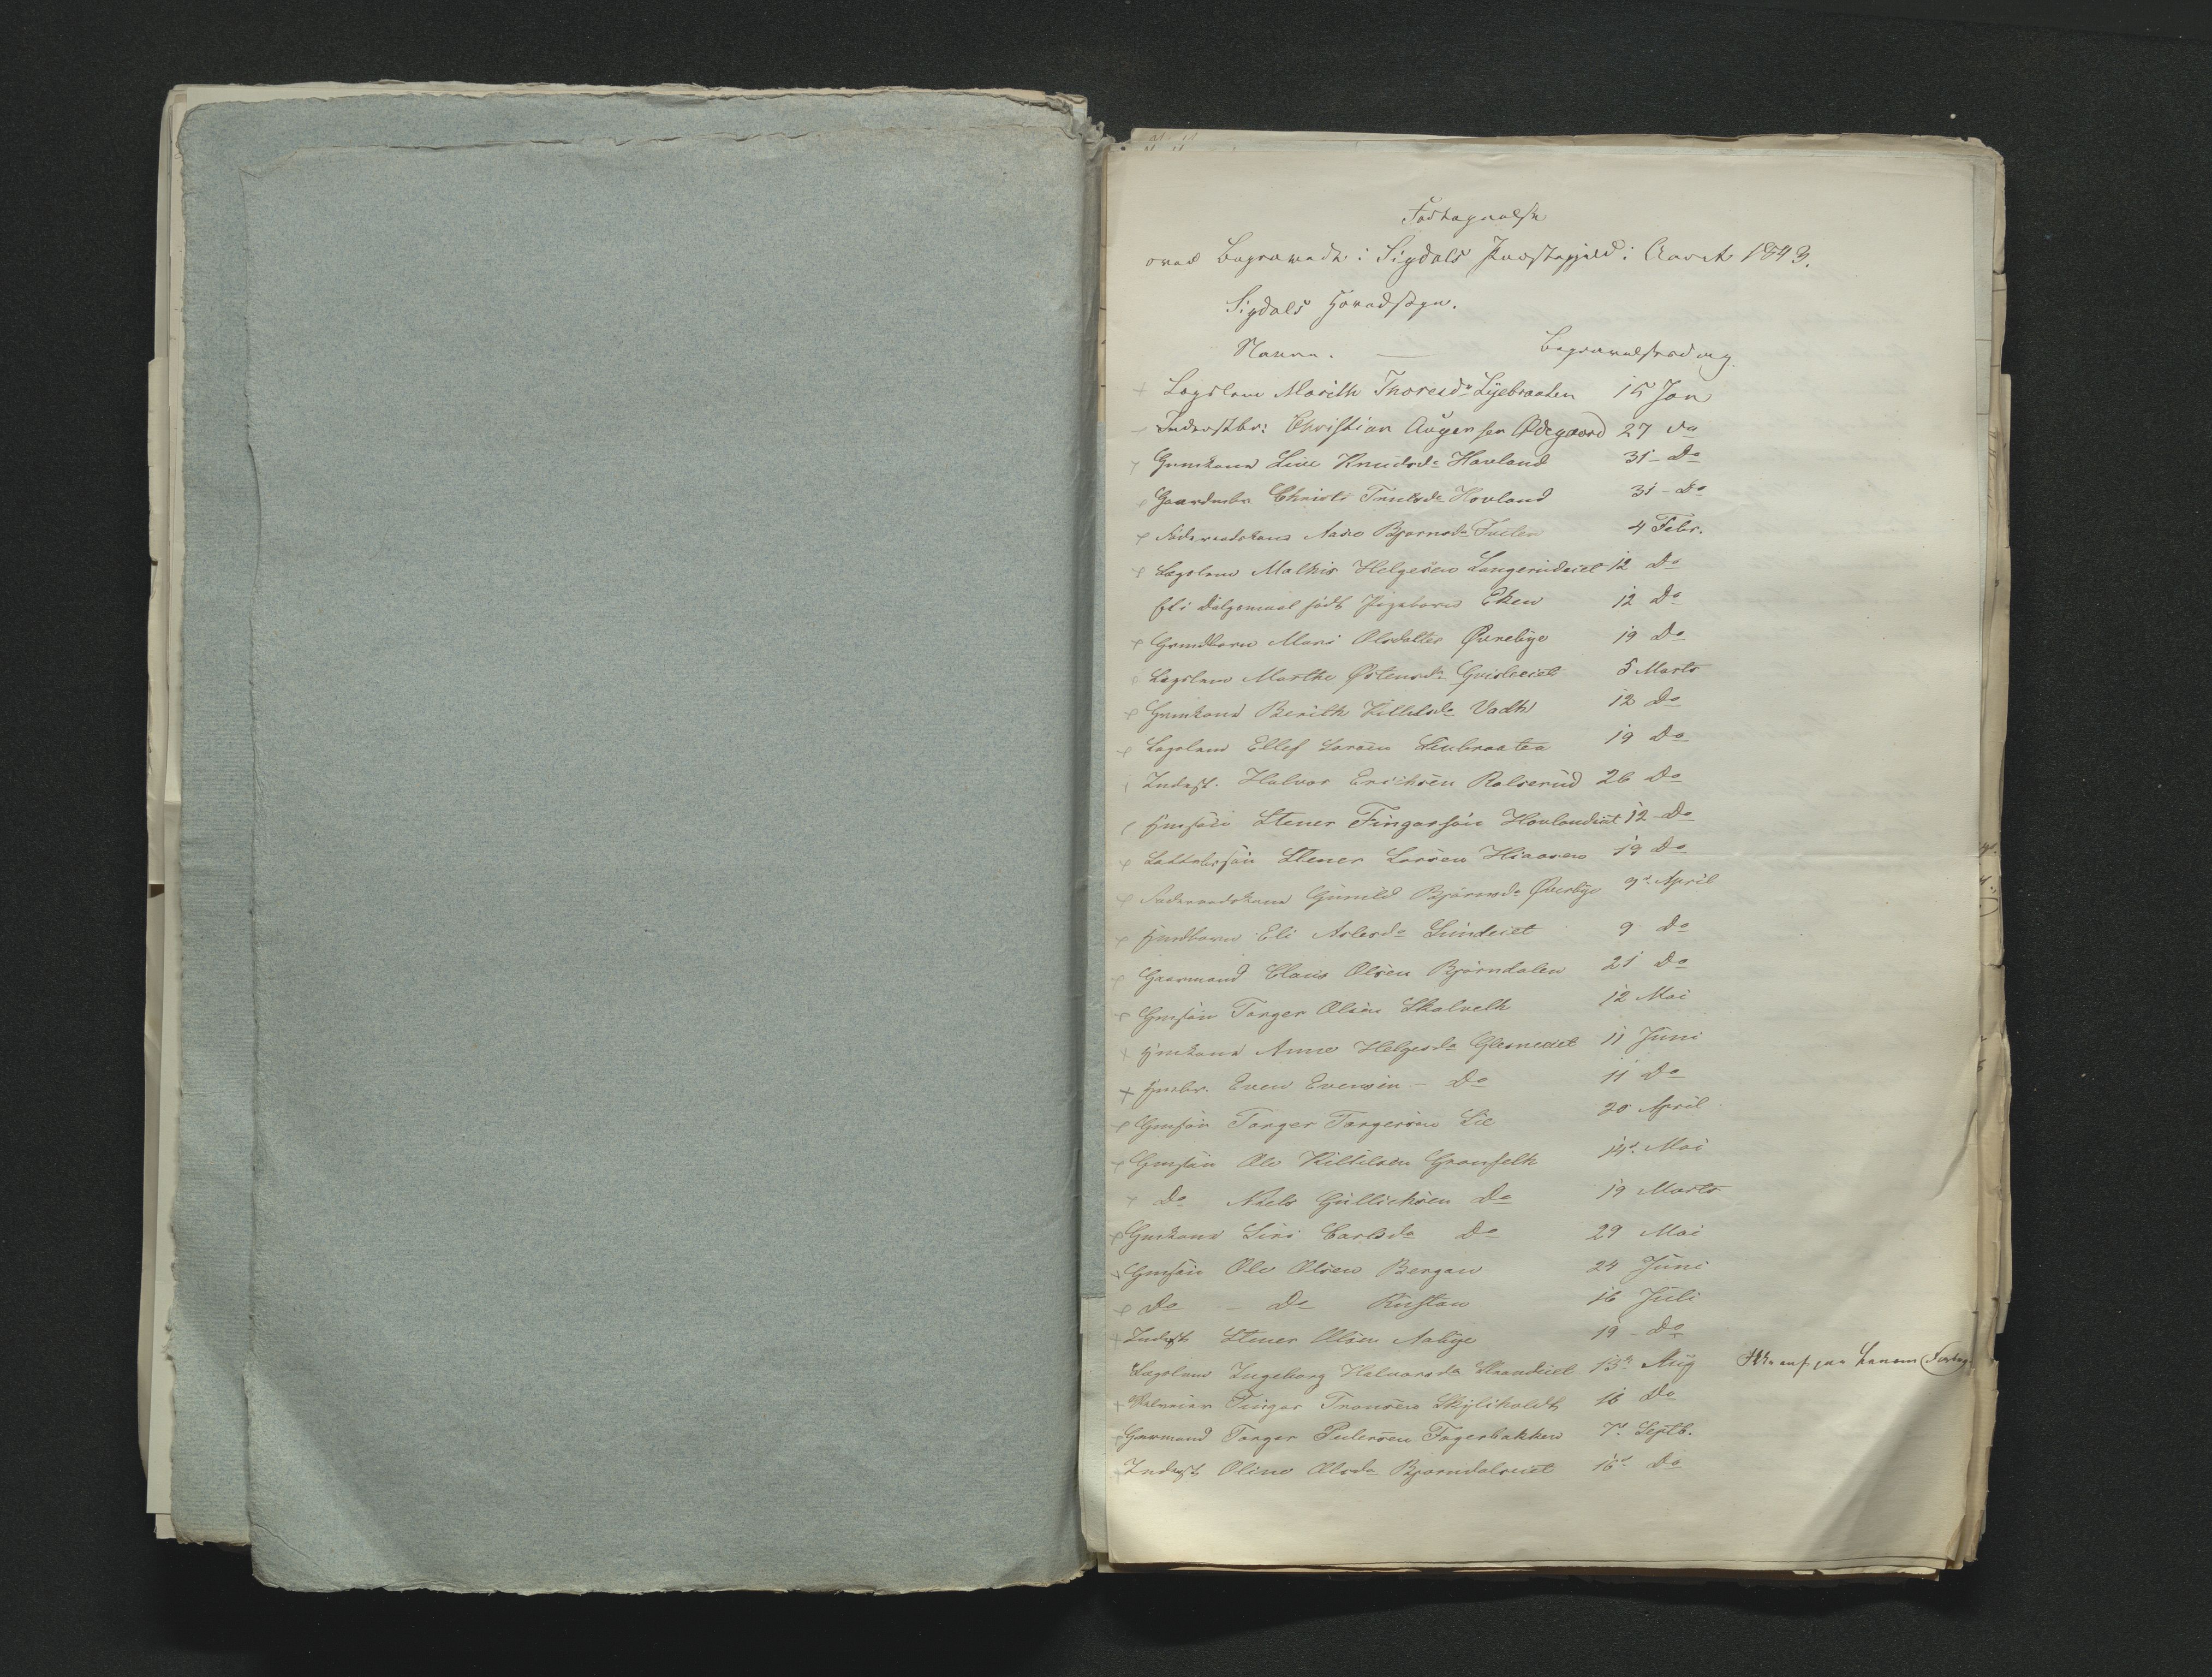 Fortegnelse
over Begravede i Sigdals Præstegjeld i Aaret 1843.
Sigdals Hovedsogn.
Navne. — Begravelsesdag
+ Lægslem Marith Thoresdr Lyebraaten 15 Jan
Inderstbr: Christian Augensen Ødegaard 27 do
Gmkone Live Knudsdr Hovland 31 - Do
Gaardmbr Christi Trulsdr Hovland 31 - Do
Føderaadskone Aase Bjørnsdr 4 Febr.
Lægslem Mathis Helgesen Langerudeiet 12 Do
Et i Dølgsmaal født Pigebarn Eken 12 Do
Gmdbarn Mari Olsdatter Øvrebye 19 Do
Lægslem Marthe Østensdr Grisleeiet 5 Marts
Gmkone Berith Kittelsdr Vadh 12 Do
Lægslem Ellef Larsen Liebraaten 19 Do
Inderst. Halvor Erichsen Rolserud 26 Do
Hmsøn Stener Fingarsøn Hovlandeiet 12 - Do
søn Stener Larsen Hiaasen 19 Do
Føderaadskone Gunild Bjørnsdr Øverbye 9d April
Hmdbarn Eli Aslesdr Lindeiet 9 Do
Gaarmand Claus Olsen Bjørndalen 21 Do
Gmsøn Torger Olsen Skalveth 12 Mai
+ Hmkone Anne Helgesdr Glesneeiet 11 Juni
+ Hmbr. Even Evensen - Do 11 Do
Gmsøn Torger Torgersen Lie 20 April
Gmsøn Ole Kittilsen Grønseth 14d Mai
Do Niels Gullichsen Do 19 Marts
Gmkone Siri Carlsdr Do 29 Mai
Gmsøn Ole Olsen Bergan 24 Juni
Do - Do Kustan 16 Juli
+ Inderst Stener Olsen Aabye 19 - Do
Lægslem Ingeborg Halvorsdr Strandeiet 13de Aug
+ Fingar Tronsen Skyliholdt 16 Do
Gaarmand Torger Pedersen Fagerbakken 7d Septb.
Inderst Oline Olsdr Bjørndalseiet 16d Do